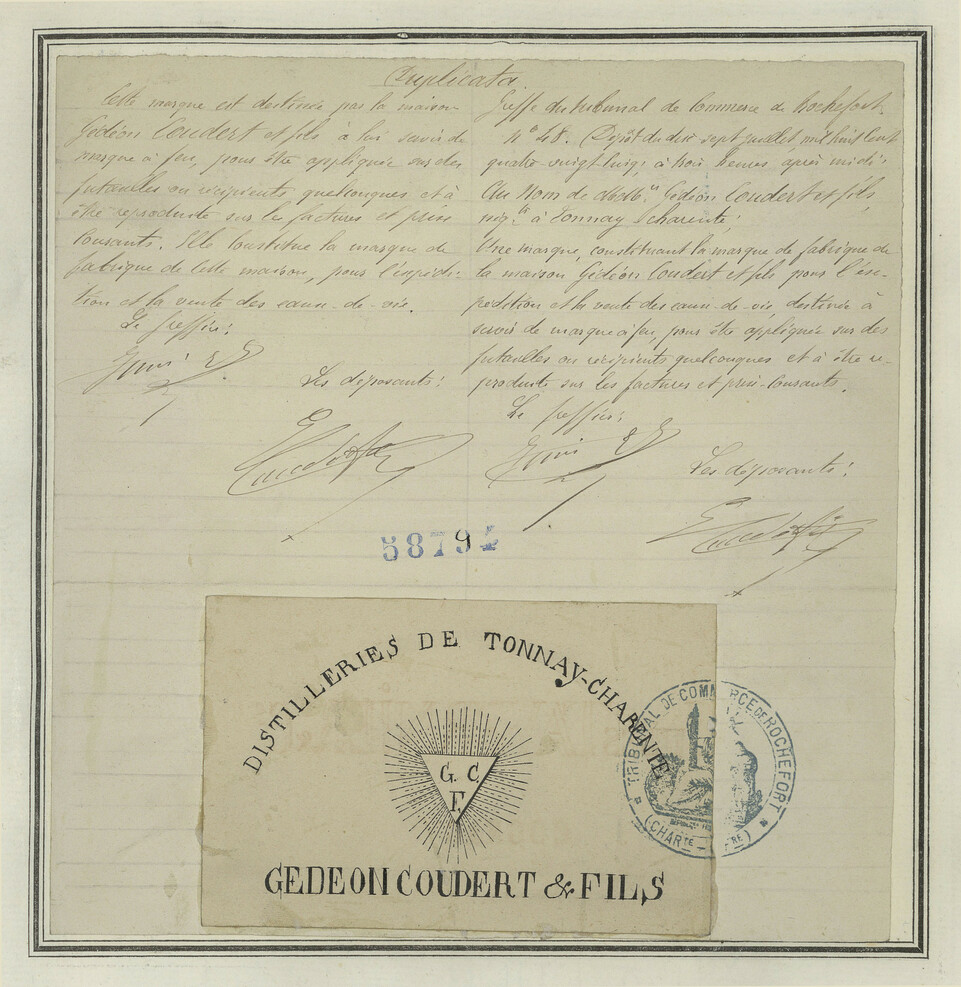 Duplicata.
Cette marque est destinée par la maison
Gédéon Coudert et fils à lui servir de
marque à feu, pour être appliquée sur des
futailles ou récipients quelconques et à
être reproduite sur les factures et prix
Courants. Elle Constitue la marque de
fabrique de cette maison, pour l'expédi-
tion et la vente des eaux-de-vie.
Le greffier:
Les déposants:
Greffe du tribunal de Commerce de Rochefort.
N° 48. Dépôt du dix sept juillet mil huit cent
quatre-vingt cinq, à trois heures après midi.
Au Nom de Gédéon Coudert et fils,
nég.ts à Tonnay Charente;
Une marque, constituant la marque de fabrique de
la maison Gédéon Coudert et fils pour l'ex-
pédition et la vente des eaux-de-vie, destinée à
servir de marque à feu, pour être appliquée sur des
futailles ou récipients quelconques et à être re-
produite sur les factures et prix-Courants.
Le greffier:
Les déposants:
58794
DISTILLERIES DE TONNAY-CHARENTE
G. C.
F.
GEDEON COUDERT & FILS
TRIBUNAL DE COMMERCE DE ROCHEFORT
(CHARTE-RE)